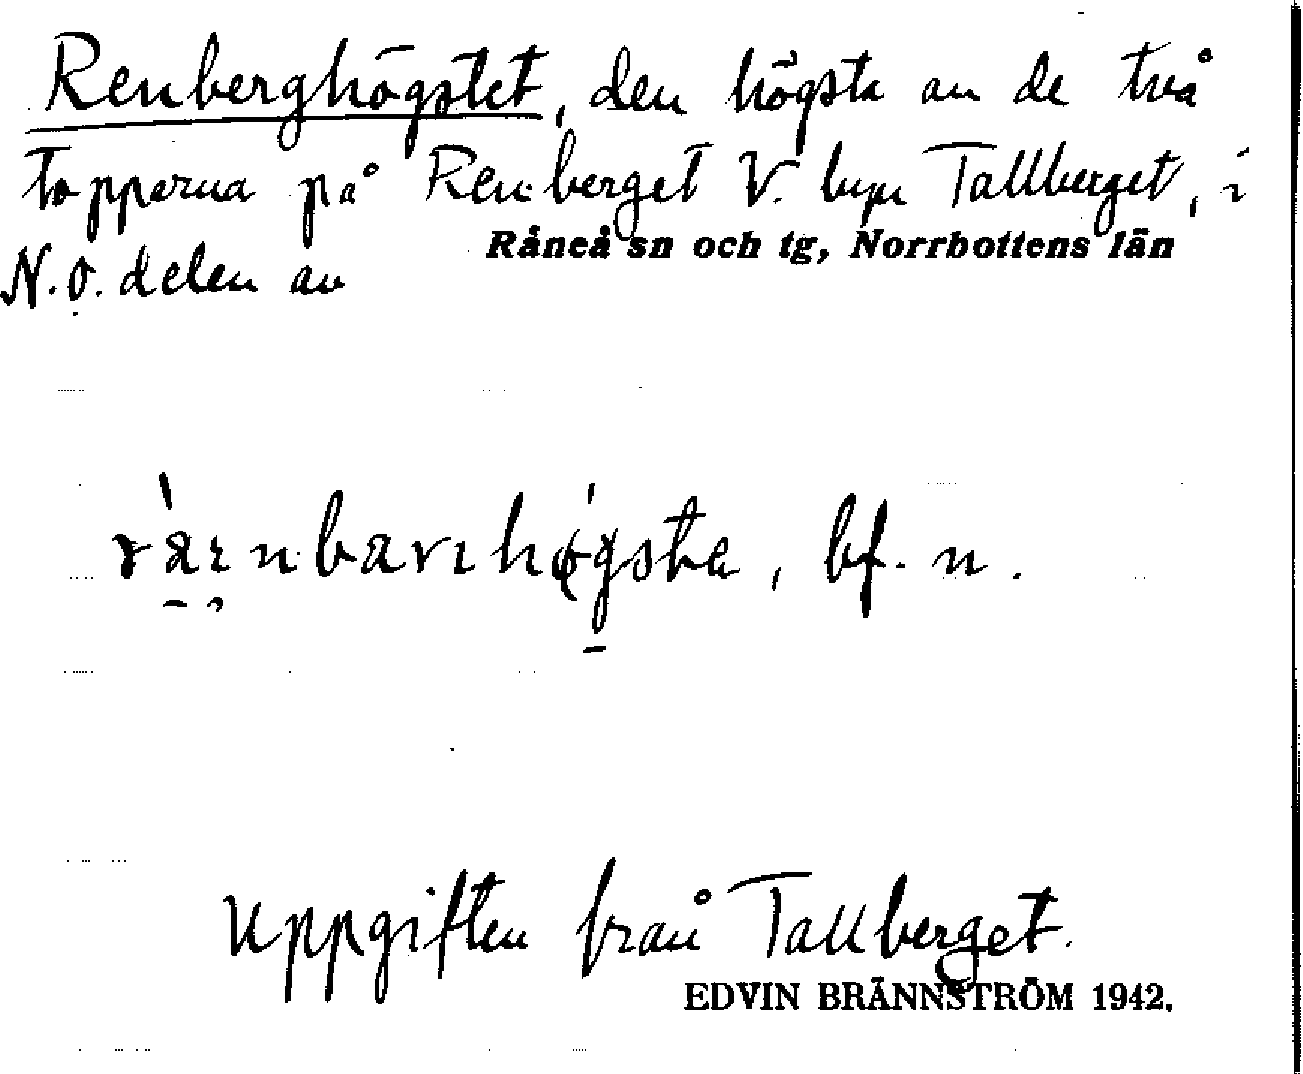 Renberghögstet, den högsta av de två
topparna på Renberget V. byn Tallberget, i
N.O. delen av Råneå sn och tg, Norrbottens län
bf. n.
Uppgiften från Tallberget.
EDVIN BRÄNNSTRÖM 1942.